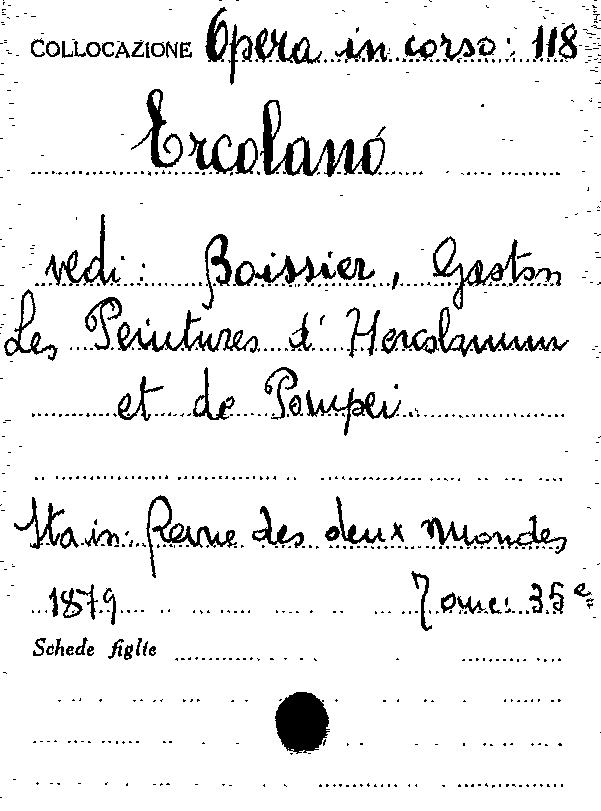 COLLOCAZIONE Opera in corso: 118
Ercolano
vedi: Boissier, Gaston
Les Peintures d' Herculanum
et de Pompei.
Sta in: Revue des deux Mondes
1879 Tome: 35e
Schede figlie